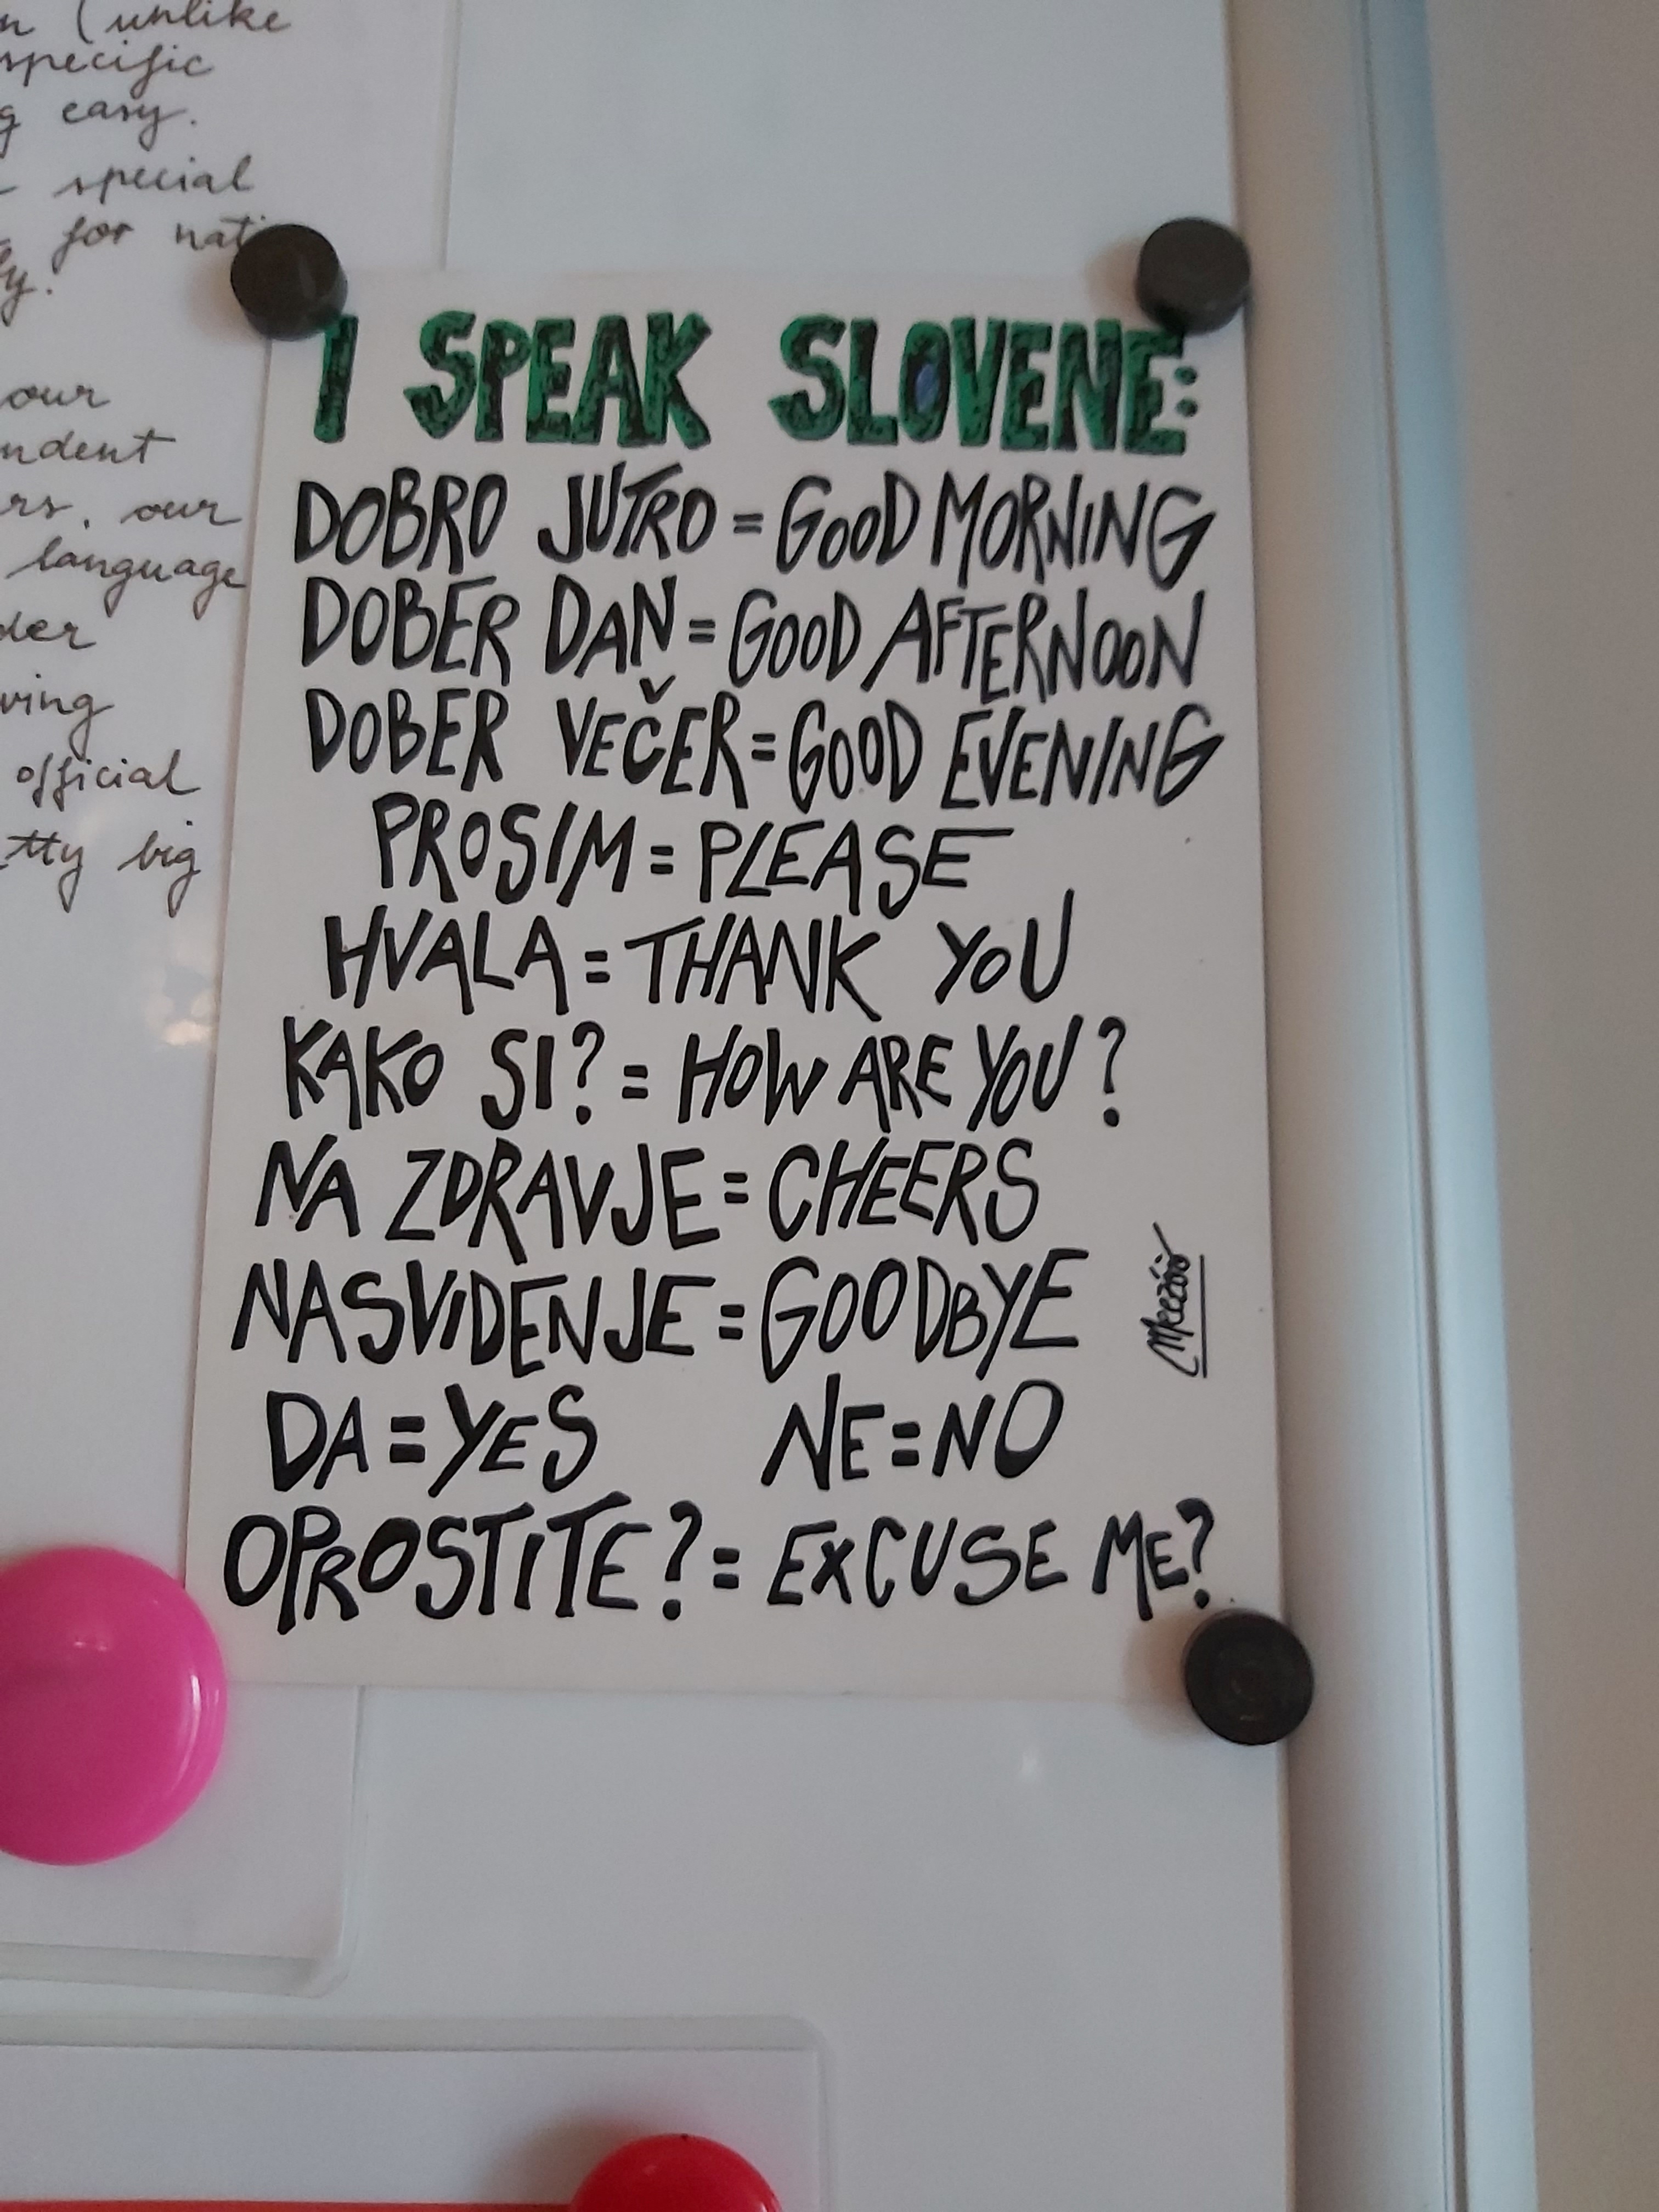 (unlike
specific
easy.
special
for
our
our
language
official
big
I SPEAK SLOVENE:
DOBRO JUTRO = GOOD MORNING
DOBER DAN = GOOD AFTERNOON
DOBER VEČER = GOOD EVENING
PROSIM = PLEASE
HVALA = THANK YOU
KAKO SI? = HOW ARE YOU?
NA ZDRAVJE = CHEERS
NASVIDENJE = GOODBYE
DA = YES NE = NO
OPROSTITE? = EXCUSE ME?